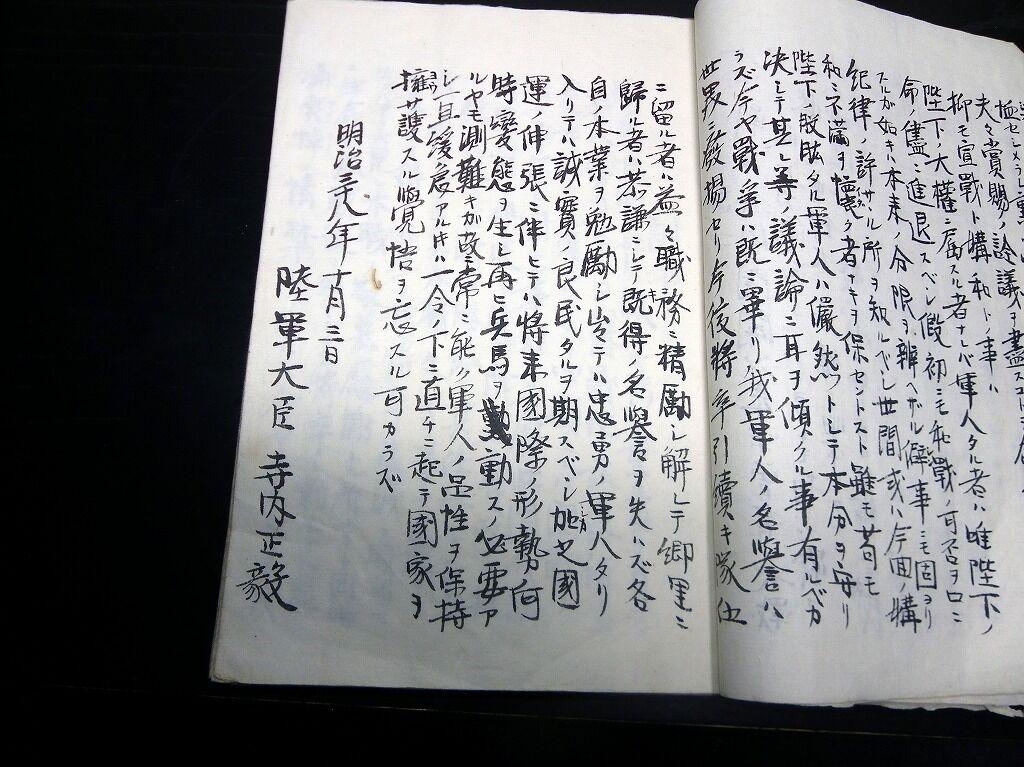 夫々賞賜ノ詮議ヲ盡ス
抑モ宣戰ト構和トノ事ハ
陛下ノ大權ニ屬スル者ナレバ軍人タル者ハ唯陛下ノ
命儘ニ進退スベシ假初ニモ和戰ノ可否ヲ口ニ
スルガ如キハ本來ノ分限ヲ辨ヘザル僻事ニモ固ヨリ
紀律ノ許サヾル所ヲ知ルベシ世間或ハ今回ノ構
和ニ不滿ヲ懷ク者ナキヲ保セントスト雖モ苟モ
陛下ノ股肱タル軍人ハ儼然トシテ本分ヲ守リ
決シテ其レ等ノ議論ニ耳ヲ傾クル事有ルベカ
ラズ今ヤ戰爭ハ既ニ畢リ我軍人ノ名譽ハ
世界ニ發揚セリ今後將卒引續キ隊伍
ニ留ル者ハ益々職務ニ精勵シ解レテ郷里ニ
歸ル者ハ恭謙ニシテ既得ノ名譽ヲ失ハズ各
自ノ本業ヲ勉勵シ出テハ忠勇ノ軍人タリ
入リテハ誠實ノ良民タルヲ期スベシ加之國
運ノ伸張ニ伴ヒテハ將来國際ノ形勢何
時變態ヲ生シ再ヒ兵馬ヲ動スノ必要ア
ルヤモ測難キガ故ニ常ニ能ク軍人ノ品性ヲ保持
シ一旦緩急アルキハ一令ノ下ニ直チニ起テ國家ヲ
擁護スル覺悟ヲ忘スル可カラズ
明治三十八年十月三日
陸軍大臣 寺内正毅